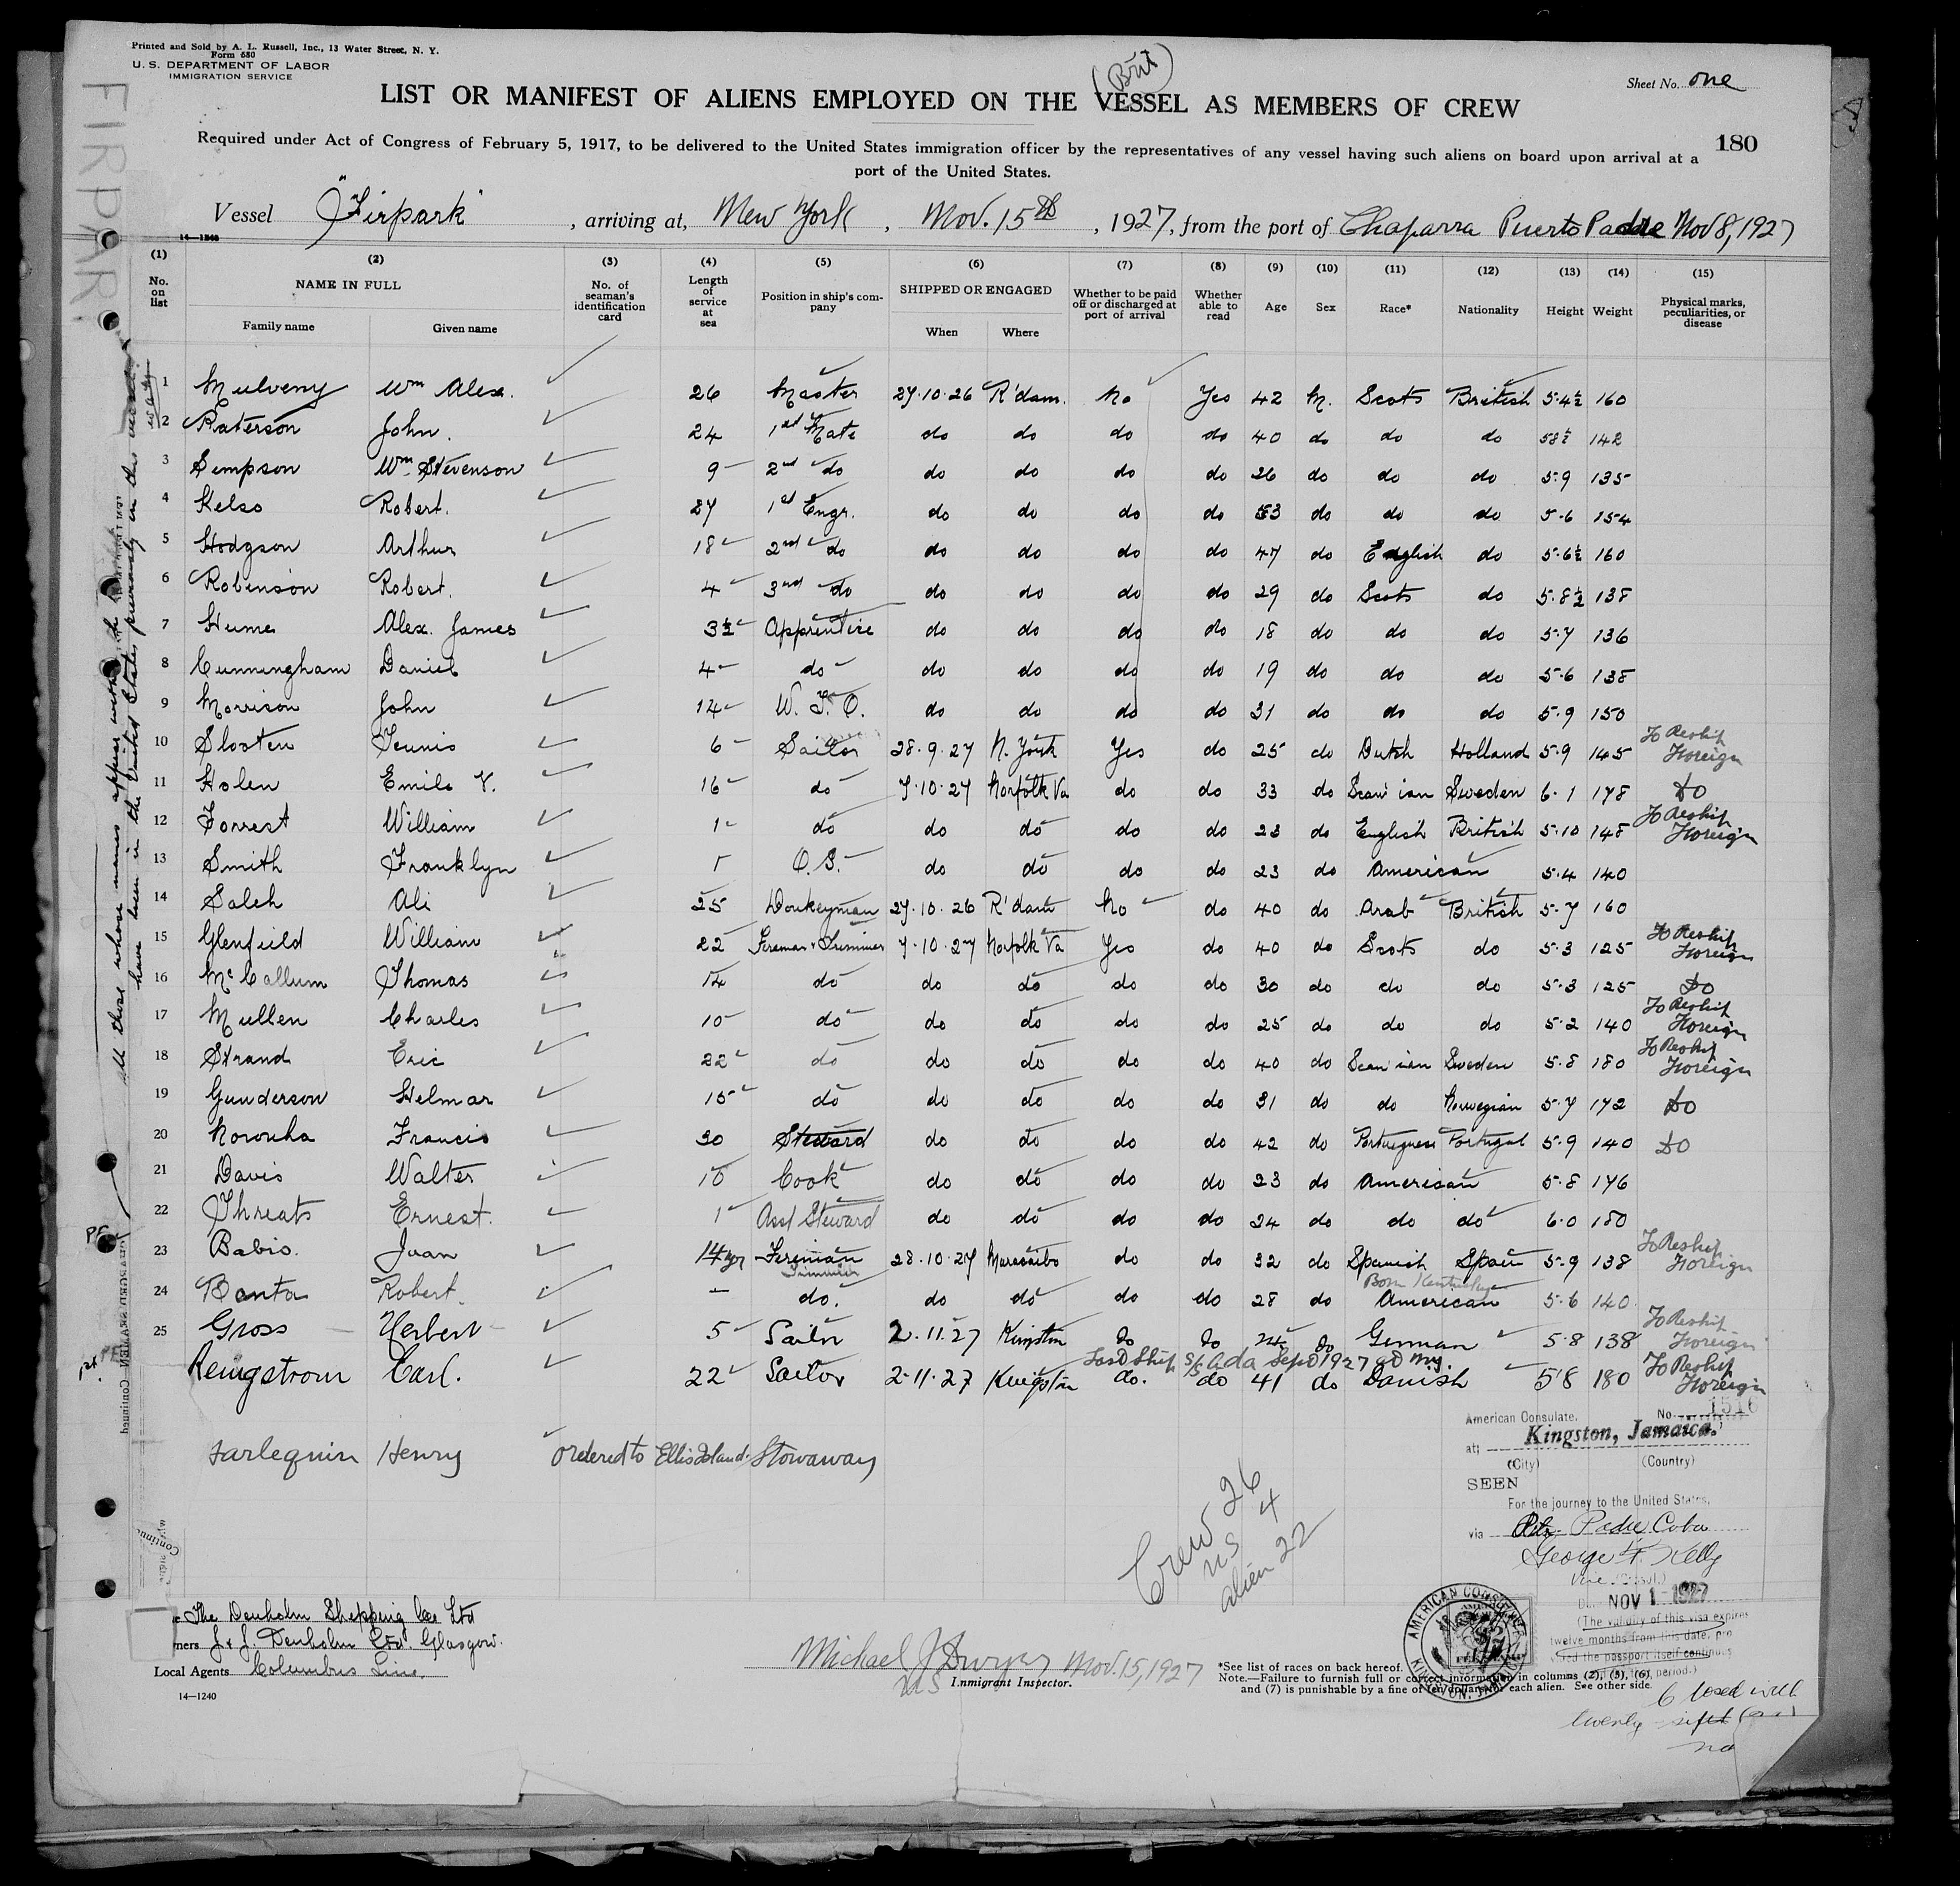 Printed and Sold by A. L. Russell, Inc., 13 Water Street, N. Y.
Form 680
U. S. DEPARTMENT OF LABOR
IMMIGRATION SERVICE
(Brit)
Sheet No. one
LIST OR MANIFEST OF ALIENS EMPLOYED ON THE VESSEL AS MEMBERS OF CREW
180
Required under Act of Congress of February 5, 1917, to be delivered to the United States immigration officer by the representatives of any vessel having such aliens on board upon arrival at a
port of the United States.
Vessel "Firpark", arriving at, New York, Nov. 15th, 1927, from the port of Chaparra Puerto Padre Nov 8, 1927
14—1240
(1) (2) (3) (4) (5) (6) (7) (8) (9) (10) (11) (12) (13) (14) (15)
No. on list NAME IN FULL Family name Given name No. of seaman's identification card Length of service at sea Position in ship's company SHIPPED OR ENGAGED When Where Whether to be paid off or discharged at port of arrival Whether able to read Age Sex Race* Nationality Height Weight Physical marks, peculiarities, or disease
1 Mulveny Wm Alex. 26 Master 27.10.26 R'dam. No Yes 42 M. Scots British 5.4½ 160
2 Paterson John. 24 1st Mate do do do do 40 do do do 5 8½ 142
3 Simpson Wm Stevenson 9 2nd do do do do do 26 do do do 5.9 135
4 Kelso Robert. 27 1st Engr. do do do do 53 do do do 5.6 154
5 Hodgson Arthur 18 2nd do do do do do 47 do English do 5.6½ 160
6 Robinson Robert. 4 3rd do do do do do 29 do Scots do 5.8½ 138
7 Hume Alex. James 3½ Apprentice do do do do 18 do do do 5.7 136
8 Cunningham Daniel 4 do do do do do 19 do do do 5.6 138
9 Morrison John 14 W. T. O. do do do do 31 do do do 5.9 150
10 Sloten Teunis 6 Sailor 28.9.27 N. York Yes do 25 do Dutch Holland 5.9 145 To Reship Foreign
11 Holen Emile V. 16 do 7.10.27 Norfolk Va do do 33 do Scan'ian Sweden 6.1 178 DO
12 Forrest William 1 do do do do do 23 do English British 5.10 148 To Reship Foreign
13 Smith Franklyn O.S. do do do do 23 do American 5.4 140
14 Saleh Ali 25 Donkeyman 27.10.26 R'dam No do 40 do Arab British 5.7 160
15 Glenfield William 22 Fireman & Trimmer 7.10.27 Norfolk Va Yes do 40 do Scots do 5.3 125 To Reship Foreign
16 McCallum Thomas 14 do do do do do 30 do do do 5.3 125 DO
17 Mullen Charles 10 do do do do do 25 do do do 5.2 140 To Reship Foreign
18 Strand Eric 22 do do do do do 40 do Scan'ian Sweden 5.8 180 To Reship Foreign
19 Gunderson Helmar 15 do do do do do 31 do do Norwegian 5.7 172 DO
20 Noronha Francis 30 Steward do do do do 42 do Portuguese Portugal 5.9 140 DO
21 Davis Walter 10 Cook do do do do 23 do American 5.8 176
22 Threats Ernest. 1 Asst Steward do do do do 24 do do do 6.0 180
23 Babio. Juan 14 yr Fireman Trimmer 28.10.27 Maracaibo do do 32 do Spanish Spain 5.9 138 To Reship Foreign
24 Banta Robert. — do. do do do do 28 do Born Kentucky American 5.6 140
25 Gross Herbert 5 Sailor 2.11.27 Kingston do do 24 do German 5.8 138 To Reship Foreign
Last Ship S/S Ada Sept 1927 at NY.
Reingstrom Carl. 22 Sailor 2-11.27 Kingston do. do 41 do Danish 5'8 180 To Reship Foreign
Harlequin Henry ordered to Ellis Island. Stowaway
Crew 26
US 4
alien 22
American Consulate. No. 1516
at; Kingston, Jamaica.
(City) (Country)
SEEN
For the journey to the United States,
via Pto. Padre Cuba
George F. Kelly
Vice (Consul.)
NOV 1 1927
(The validity of this visa expires
twelve months from this date, pro
vided the passport itself continues
period.)
AMERICAN CONSULATE
KINGSTON, JAMAICA
The Denholm Shipping Co Ltd
ners J & J. Denholm Ltd. Glasgow.
Local Agents Columbus Line.
14—1240
Michael J Dwyer Nov. 15, 1927
Immigrant Inspector.
*See list of races on back hereof.
Note.—Failure to furnish full or correct information in columns (2), (5), (6),
and (7) is punishable by a fine of ten dollars for each alien. See other side.
Closed with
twenty
FIRPARK
have been in the United States previously in this